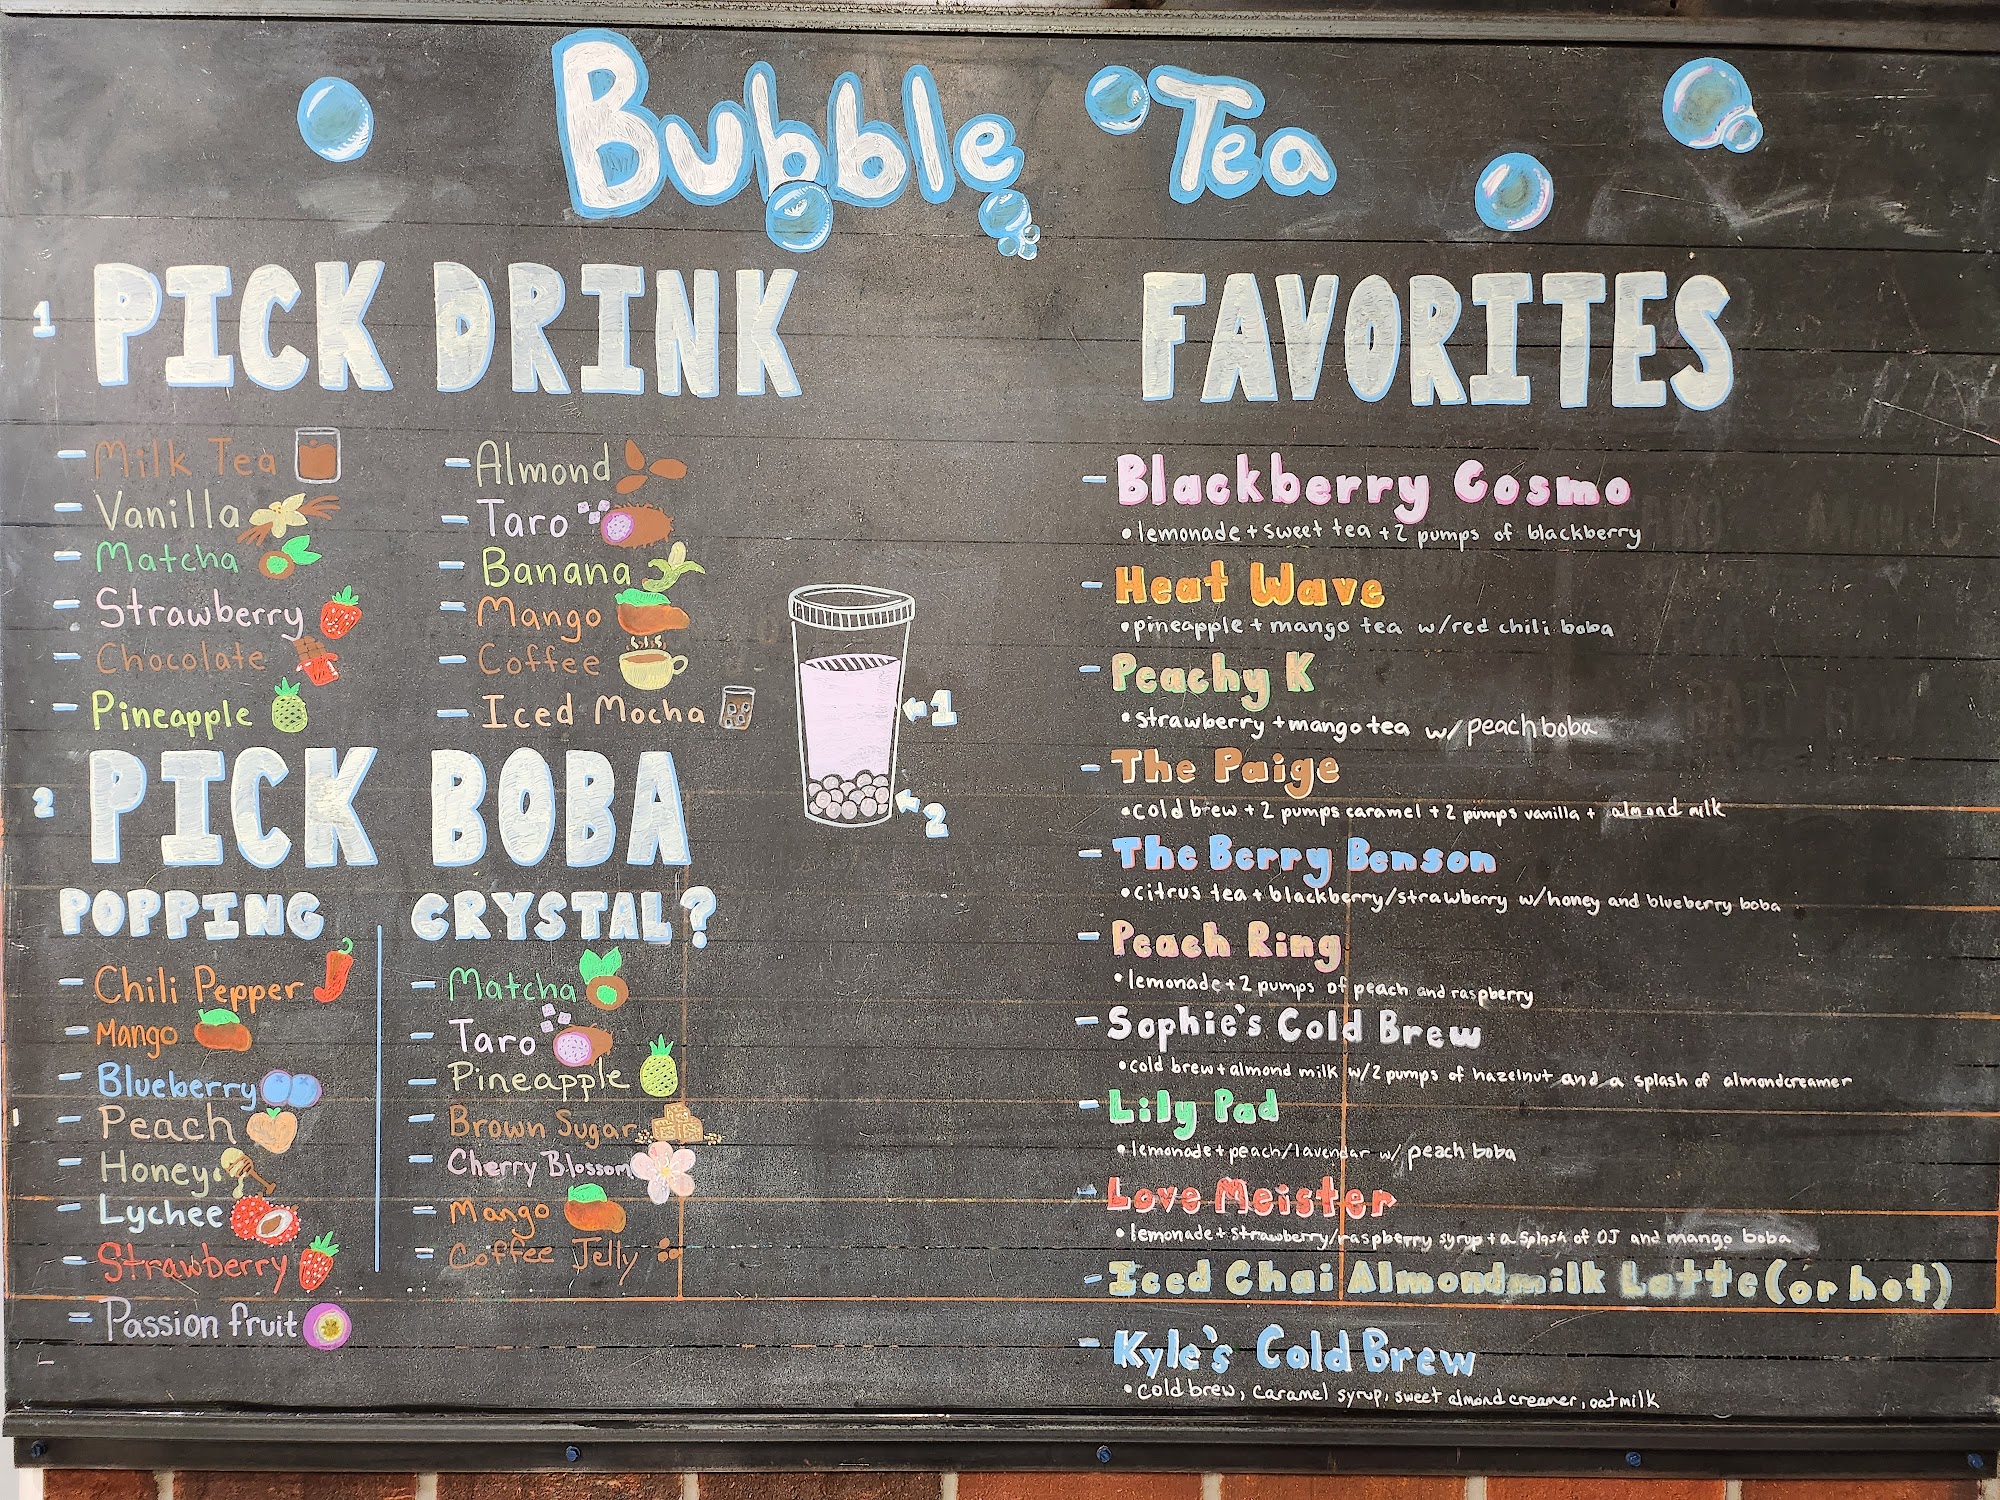 Bubble Tea
1 PICK DRINK
- Milk Tea
- Vanilla
- Matcha
- Strawberry
- Chocolate
- Pineapple
- Almond
- Taro
- Banana
- Mango
- Coffee
- Iced Mocha
1
2
2 PICK BOBA
POPPING
- Chili Pepper
- Mango
- Blueberry
- Peach
- Honey
- Lychee
- Strawberry
- Passion fruit
CRYSTAL?
- Matcha
- Taro
- Pineapple
- Brown Sugar
- Cherry Blossom
- Mango
- Coffee Jelly
FAVORITES
- Blackberry Cosmo
• lemonade + sweet tea + 2 pumps of blackberry
- Heat Wave
• pineapple + mango tea w/red chili boba
- Peachy K
• strawberry + mango tea w/ peach boba
- The Paige
• cold brew + 2 pumps caramel + 2 pumps vanilla + almond milk
- The Berry Benson
• citrus tea + blackberry/strawberry w/honey and blueberry boba
- Peach Ring
• lemonade + 2 pumps of peach and raspberry
- Sophie's Cold Brew
• cold brew + almond milk w/2 pumps of hazelnut and a splash of almondcreamer
- Lily Pad
• lemonade + peach/lavendar w/ peach boba
- Love Meister
• lemonade + strawberry/raspberry syrup + a splash of OJ and mango boba
- Iced Chai Almondmilk Latte (or hot)
- Kyle's Cold Brew
• cold brew, caramel syrup, sweet almond creamer, oatmilk